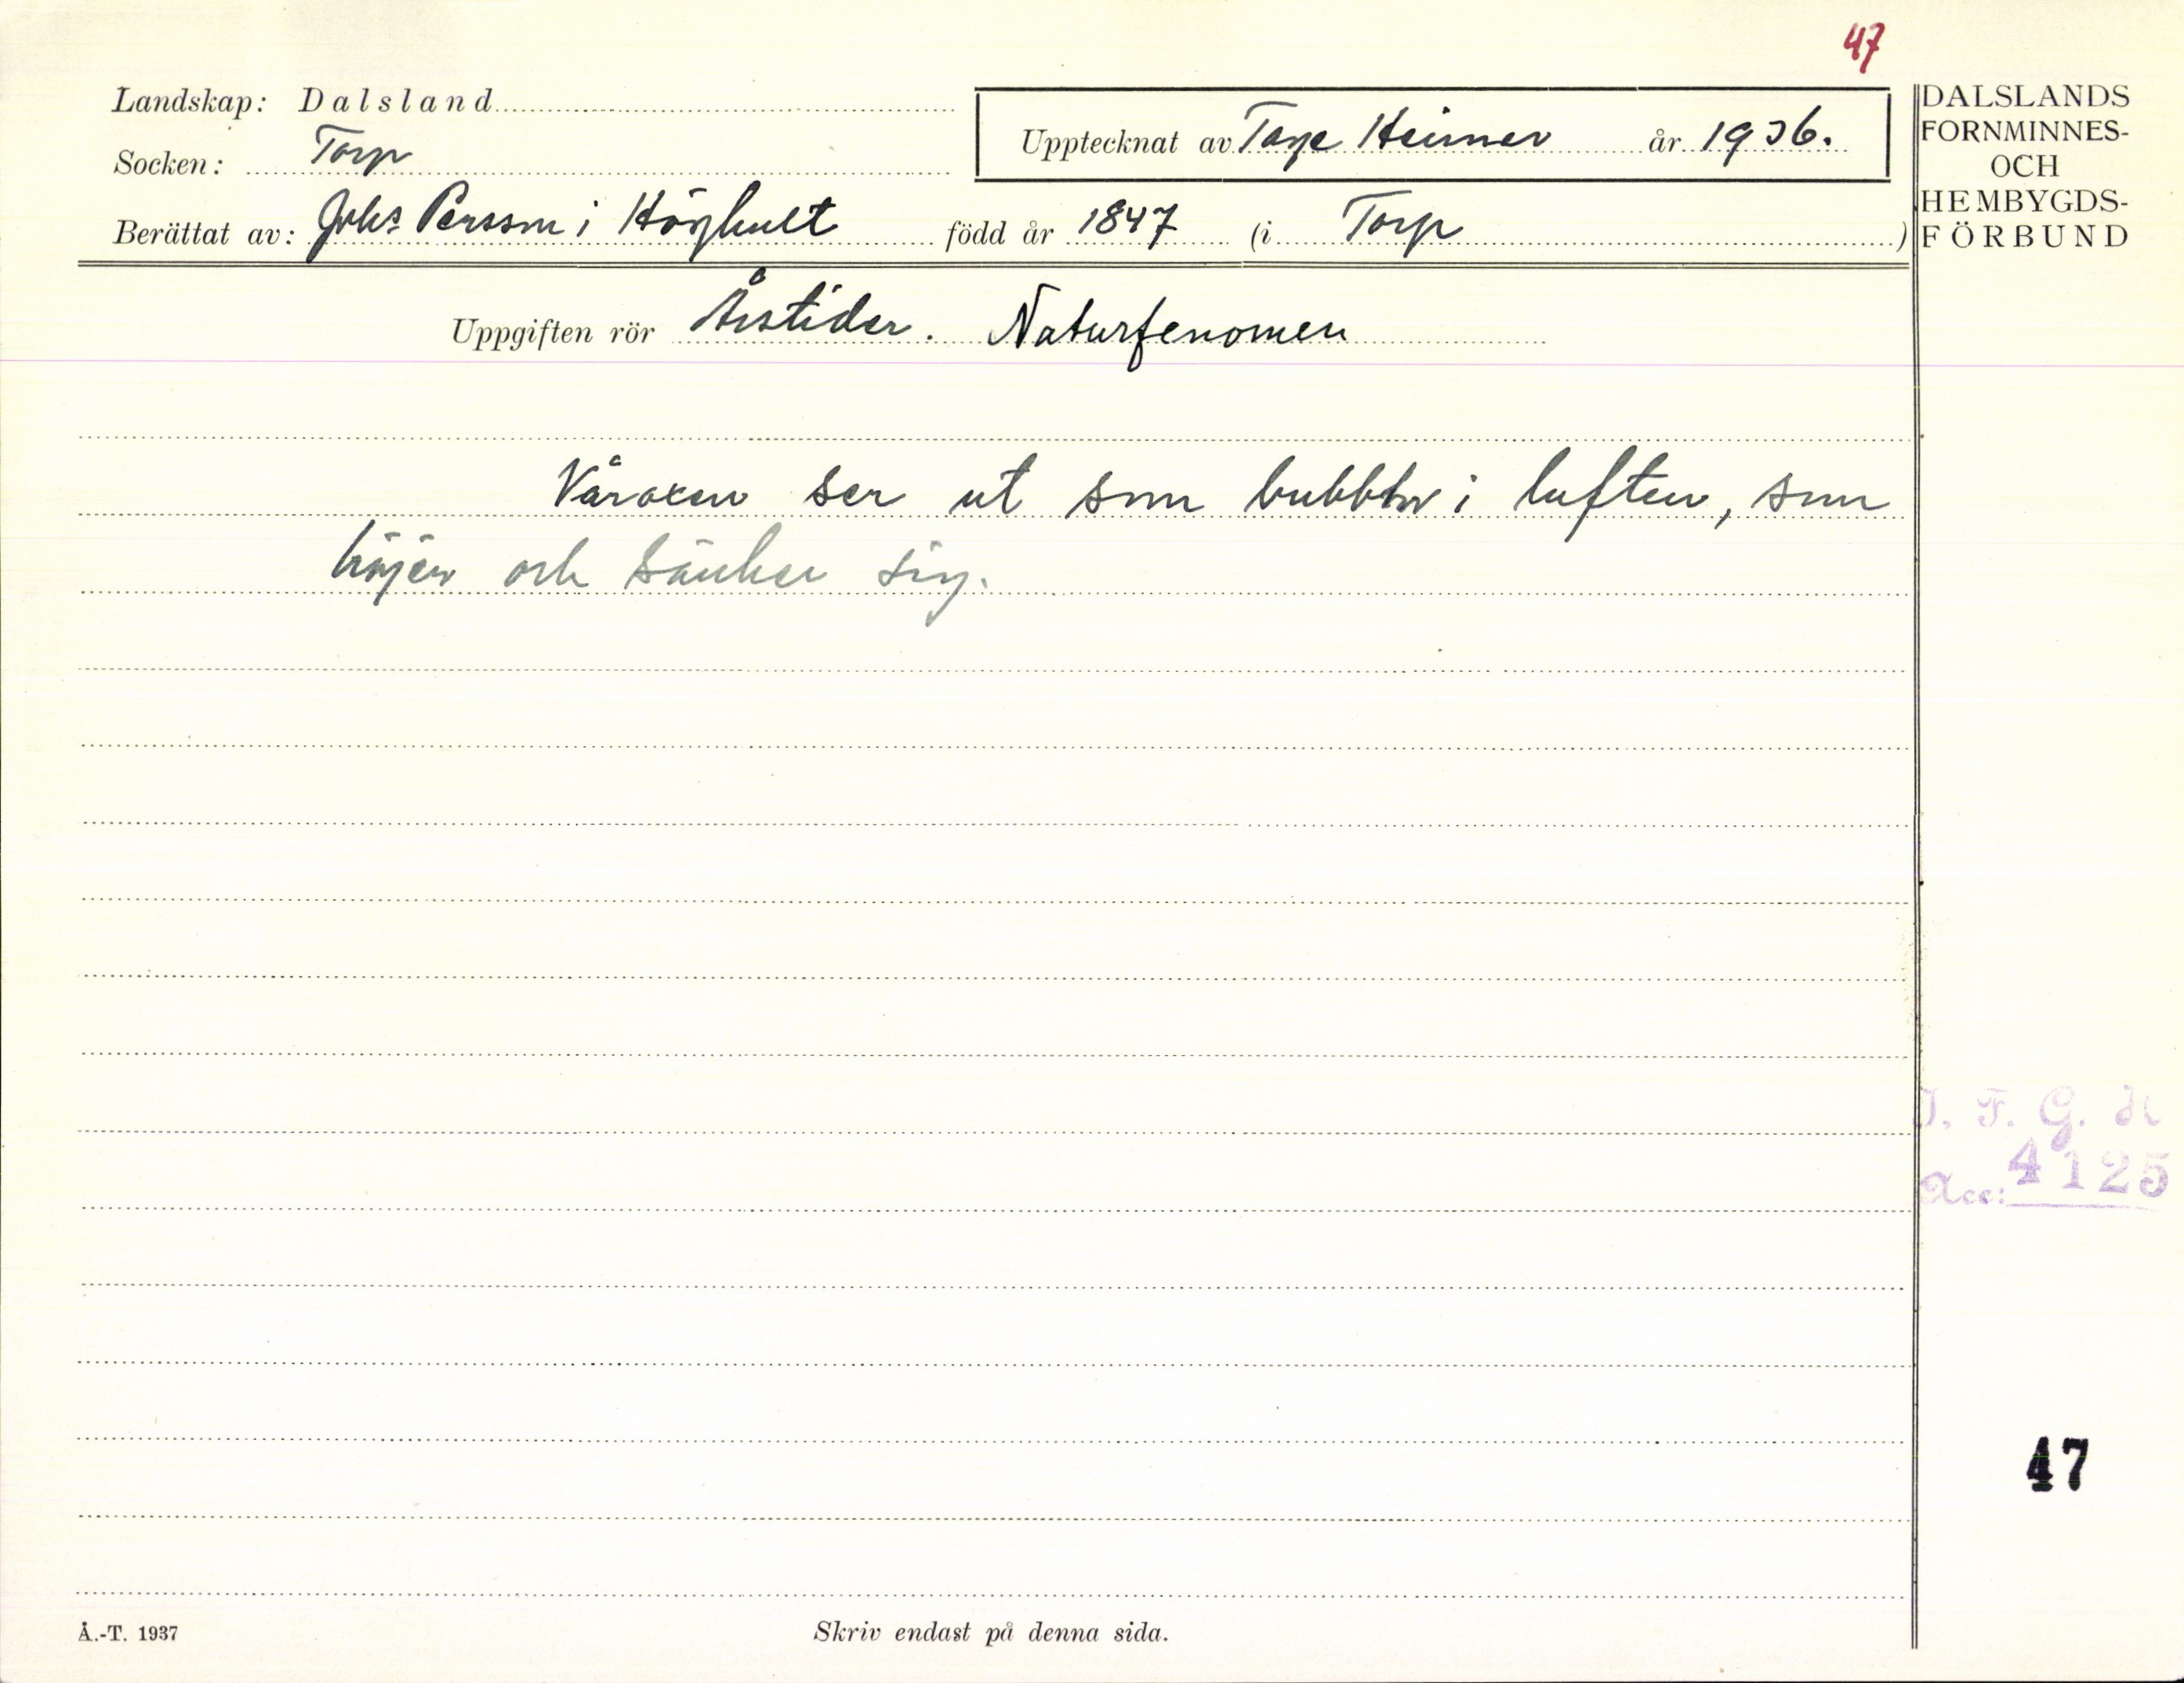 47
Landskap: Dalsland
Socken: Torp
Berättat av: Johs Persson i Höghult född år 1847 (i Torp)
Upptecknat av Tage Heimer år 1936.
DALSLANDS
FORNMINNES-
OCH
HEMBYGDS-
FÖRBUND
Uppgiften rör Årstider. Naturfenomen
Våroxen ser ut som bubblor i luften, som
höjer och sänker sig.
I. F. G. H
Acc: 4125
47
Å.-T. 1937
Skriv endast på denna sida.